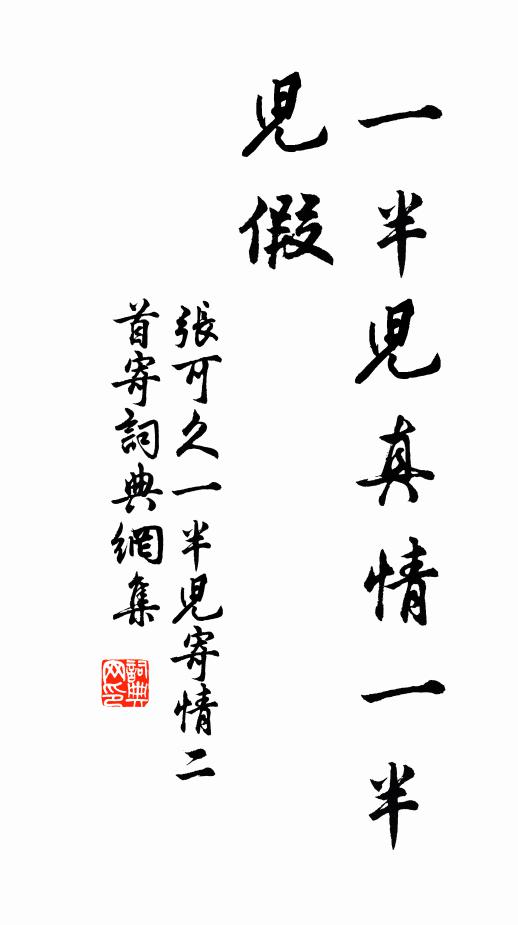 一半兒真情一半
兒假
張可久一半兒寄情二
首寄詞典網集
詞典
网印